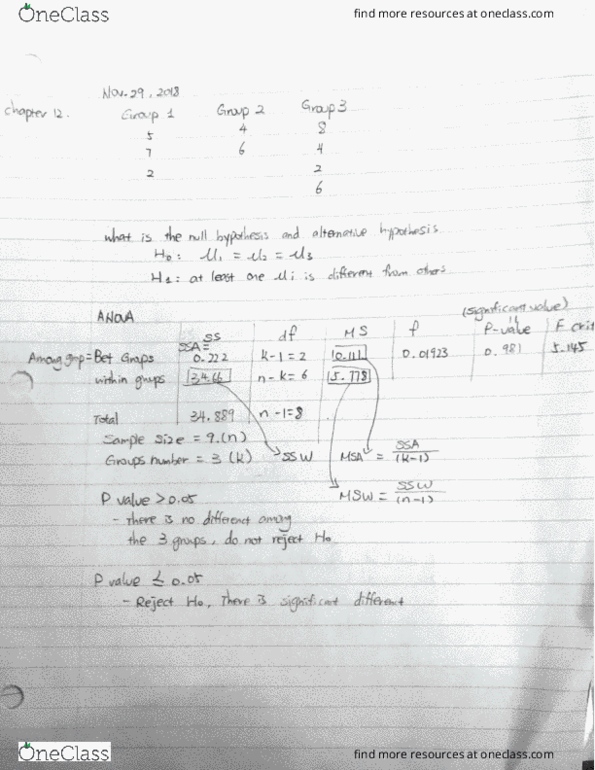 OneClass
find more resources at oneclass.com
Nov. 29, 2018
chapter 12. Group 1 Group 2 Group 3
5 4 8
7 6 4
2 2
6
what is the null hypothesis and alternative hypothesis.
H₀ : μ₁ = μ₂ = μ₃
H₁ : at least one μi is different from others
ANOVA
(significant value)
SS df MS f P-value F crit
SSA=
Among grp = Bet Groups 0.222 k-1 = 2 0.111 0.01923 0.981 5.145
within groups 34.66 n-k = 6 5.778
Total 34.889 n-1 = 8
Sample size = 9.(n)
Groups number = 3 (k) SSW MSA = SSA/(k-1)
MSW = SSW/(n-1)
P value > 0.05
- There is no different among
the 3 groups, do not reject H₀
P value ≤ 0.05
- Reject H₀, There is significant different
OneClass
find more resources at oneclass.com